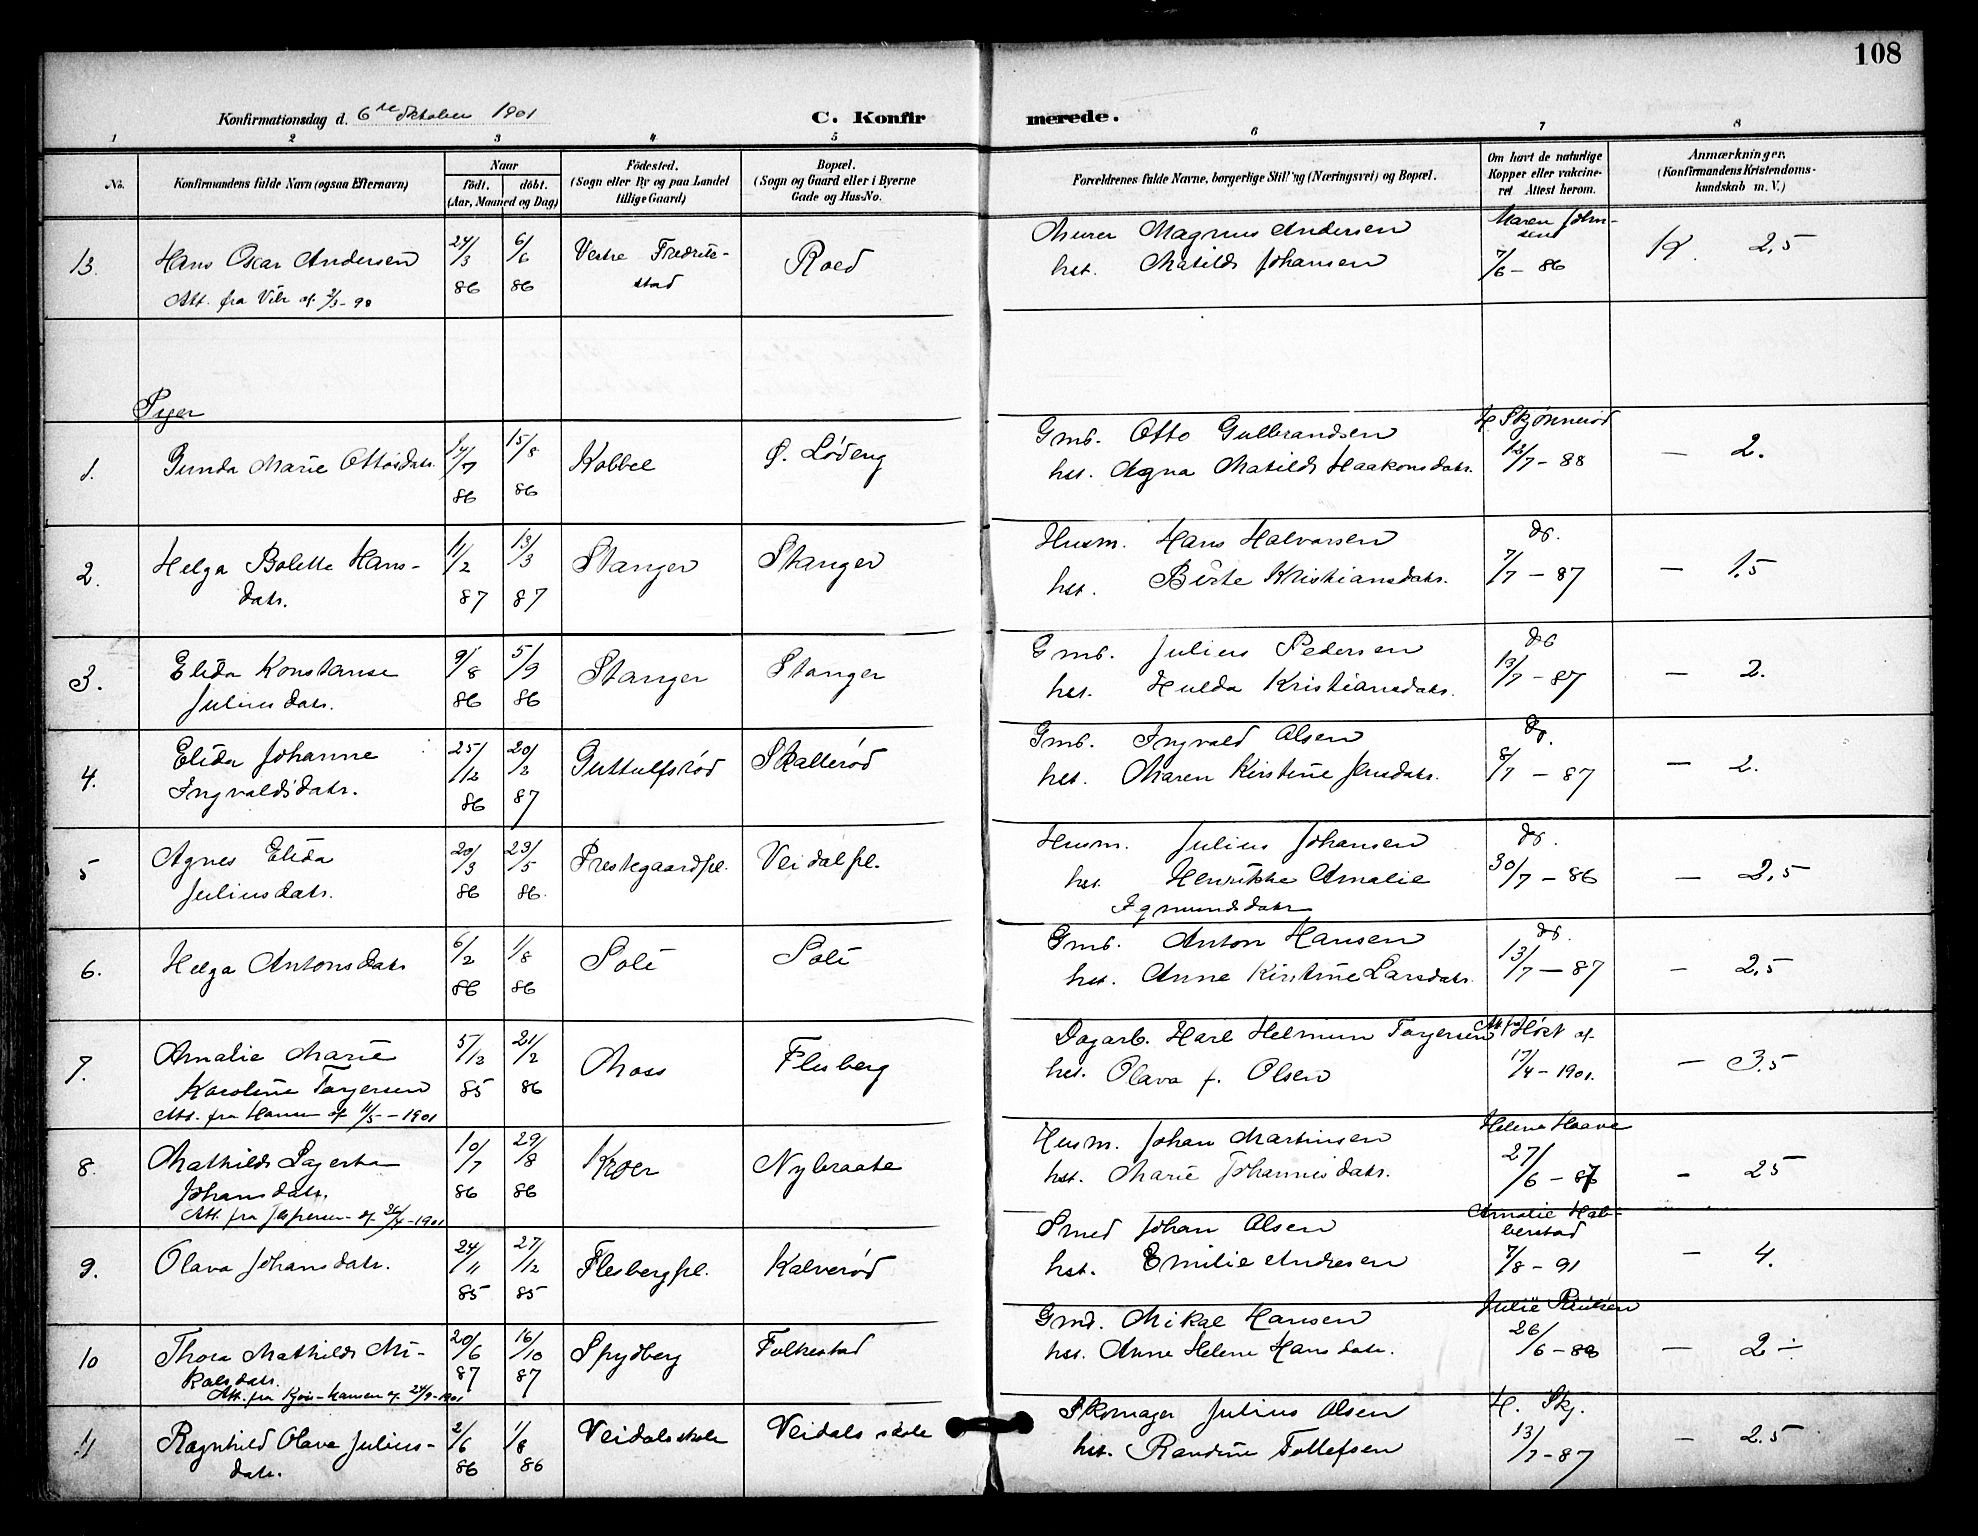 108
Konfirmationsdag d. 6te Oktober 1901 C. Konfirmerede.
1 2 3 4 5 6 7 8
No. Konfirmandens fulde Navn (ogsaa Efternavn) Naar født. døbt. (Aar, Maaned og Dag) Fødested. (Sogn eller By og paa Landet tillige Gaard) Bopæl. (Sogn og Gaard eller i Byerne Gade og Hus-No. Forældrenes fulde Navne, borgerlige Stilling (Næringsvei) og Bopæl. Om havt de naturlige Kopper eller vaccineret Attest herom. Anmærkninger. (Konfirmandens Kristendomskundskab m. V.)
13. Hans Oscar Andersen 24/3 86 6/6 86 Vestre Fredrikstad Roed Murer Magnus Andersen Maren Johnsen
Att. fra Viik af 2/3-98 hst. Matilde Johansen 7/6 - 86 2,5
Piger
1. Gunda Marie Ottosdatr. 14/7 86 15/8 86 Kobbel Ø. Lødeng Gmb. Otto Gulbrandsen H. Skjønnerød
hst. Agna Matilde Haakonsdatr. 12/7 - 88 — 2.
2. Helga Bolette Hansdatr. 11/2 87 13/3 87 Stanger Stanger Husm. Hans Halvorsen do.
hst. Birte Kristiansdatr. 7/7 - 87 — 1,5
3. Elida Konstanse 9/8 86 5/9 86 Stanger Stanger Gmb. Julius Pedersen do
Juliusdatr. hst. Hulda Kristiansdatr. 13/7 - 87 — 2.
4. Elida Johanne 25/12 86 20/2 87 Guttulfsrød Skallerød Gmb. Ingvald Olsen do.
Ingvaldsdatr. hst. Maren Kirstine Jensdatr. 8/7 - 87 — 2.
5 Agnes Elida 20/3 86 23/5 86. Prestegaardpl. Veidalpl. Husm. Julius Johansen do.
Juliusdatr. hst. Henrikke Amalie 30/7 - 86 — 2,5
6. Helga Antonsdatr 6/2 86 1/8 86 Soli Soli Gmb. Anton Hansen do.
hst. Anne Kirstine Larsdatr. 13/7 - 87 — 2,5
7. Amalie Marie 5/12 85 21/2 86 Moss Flesberg Dagarb. Karl Helmun Torgersen
Karoline Torgersen hst. Olava f. Olsen 17/4 - 1901. — 3.5
Att. fra Hansen af 11/5 - 1901
8. Mathilde Lagertha 10/7 86 29/8 86 Kroer Nybraate Husm. Johan Martinsen Helene Haave
Johansdatr. hst. Marie Johannesdatr. 27/6 - 87 — 25
Att. fra Jespersen af 26/4-1901
9. Olava Johansdatr. 24/11 85 27/12 85 Flesbergpl. Kalverød Smed Johan Olsen Amalie Halberstad
hst. Emilie Andresen 7/8 - 91 — 4.
10 Thora Mathilde Mikalsdatr. 20/6 87 16/10 87 Spydberg Folkestad Gmd. Mikal Hansen Julie
Att. fra 24/9-1901 hst. Anne Helene Hansdatr. 26/6 - 88 — 2 ÷
11 Ragnhild Olava Juliusdatr. 2/6 86 1/8 86 Veidalsskole Veidals skole Skomager Julius Olsen H. Skj.
hst. Randine Tollefsen 13/7 - 87 — 2.5